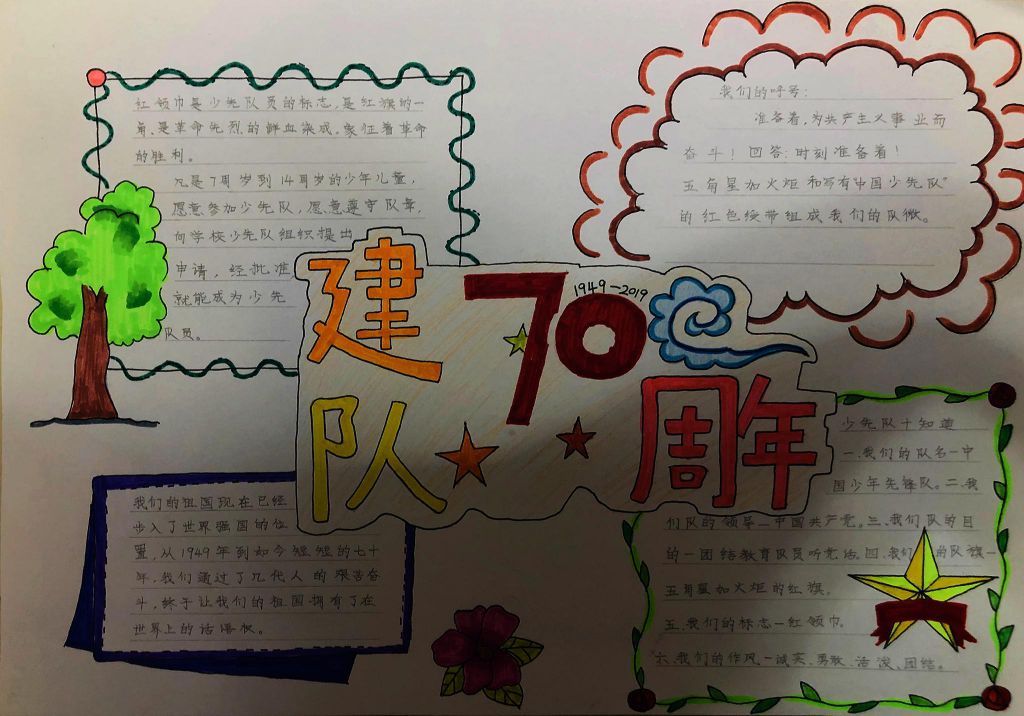 红领巾是少先队员的标志,是红旗的一
角,是革命先烈的鲜血染成。象征着革命
的胜利。
凡是7周岁到14周岁的少年儿童,
愿意参加少先队,愿意遵守队章,
向学校少先队组织提出
申请,经批准
就能成为少先
队员。
我们的呼号:
准备着,为共产主义事业而
奋斗!回答:时刻准备着!
五角星加火炬和写有“中国少先队”
的红色绶带组成我们的队徽。
建队70周年
1949-2019
我们的祖国现在已经
步入了世界强国的位
置,从1949年到如今短短的七十
年,我们通过了几代人的艰苦奋
斗,终于让我们的祖国拥有了在
世界上的话语权。
少先队十知道
一.我们的队名一中
国少年先锋队。二.我
们队的领导一中国共产党。三.我们队的目
的一团结教育队员听党话。四.我们的队旗一
五角星加火炬的红旗。
五.我们的标志一红领巾。
六.我们的作风一诚实、勇敢、活泼、团结。